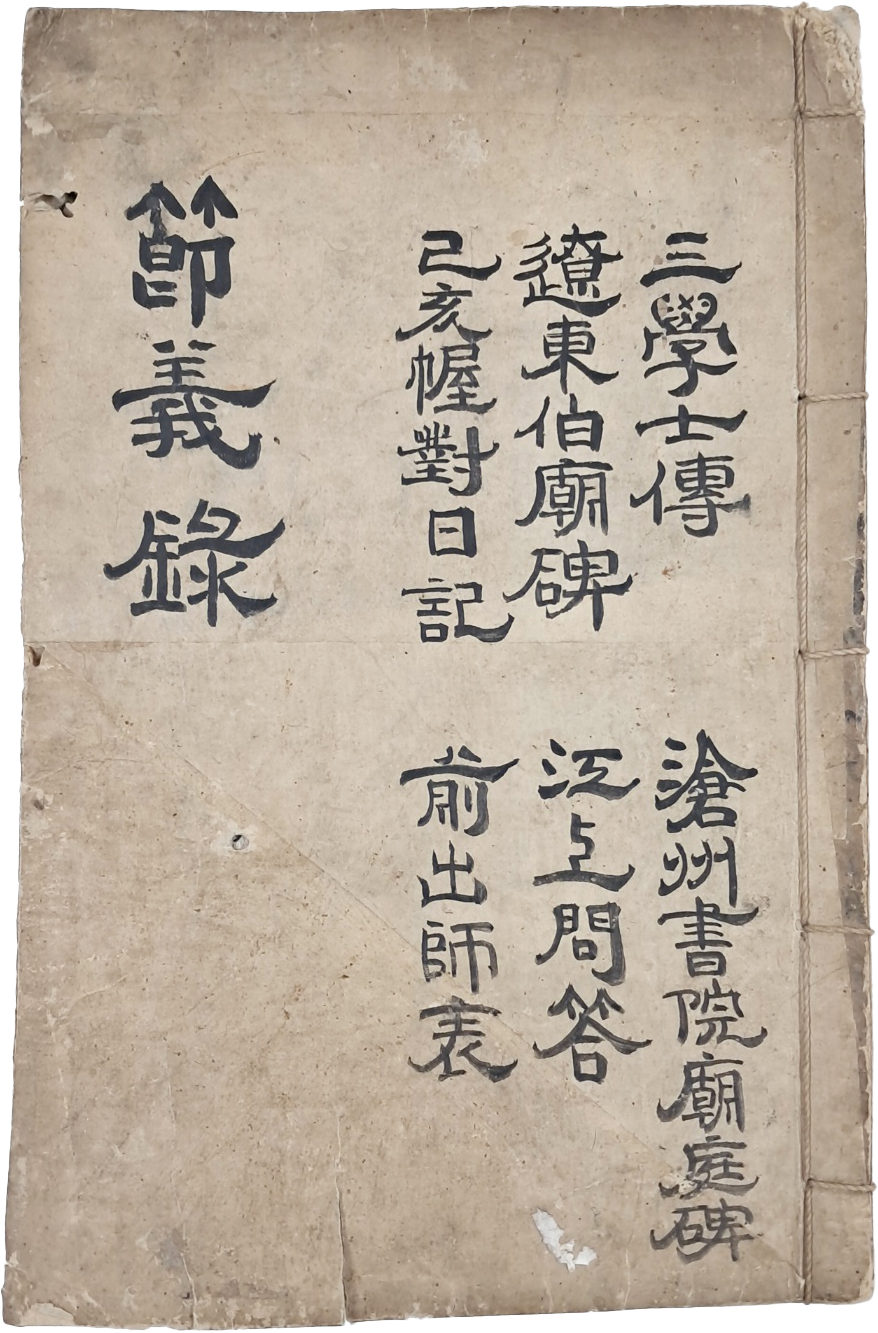 三學士傳
滄州書院廟庭碑
遼東伯廟碑
江上問答
己亥幄對日記
前出師表
節義錄